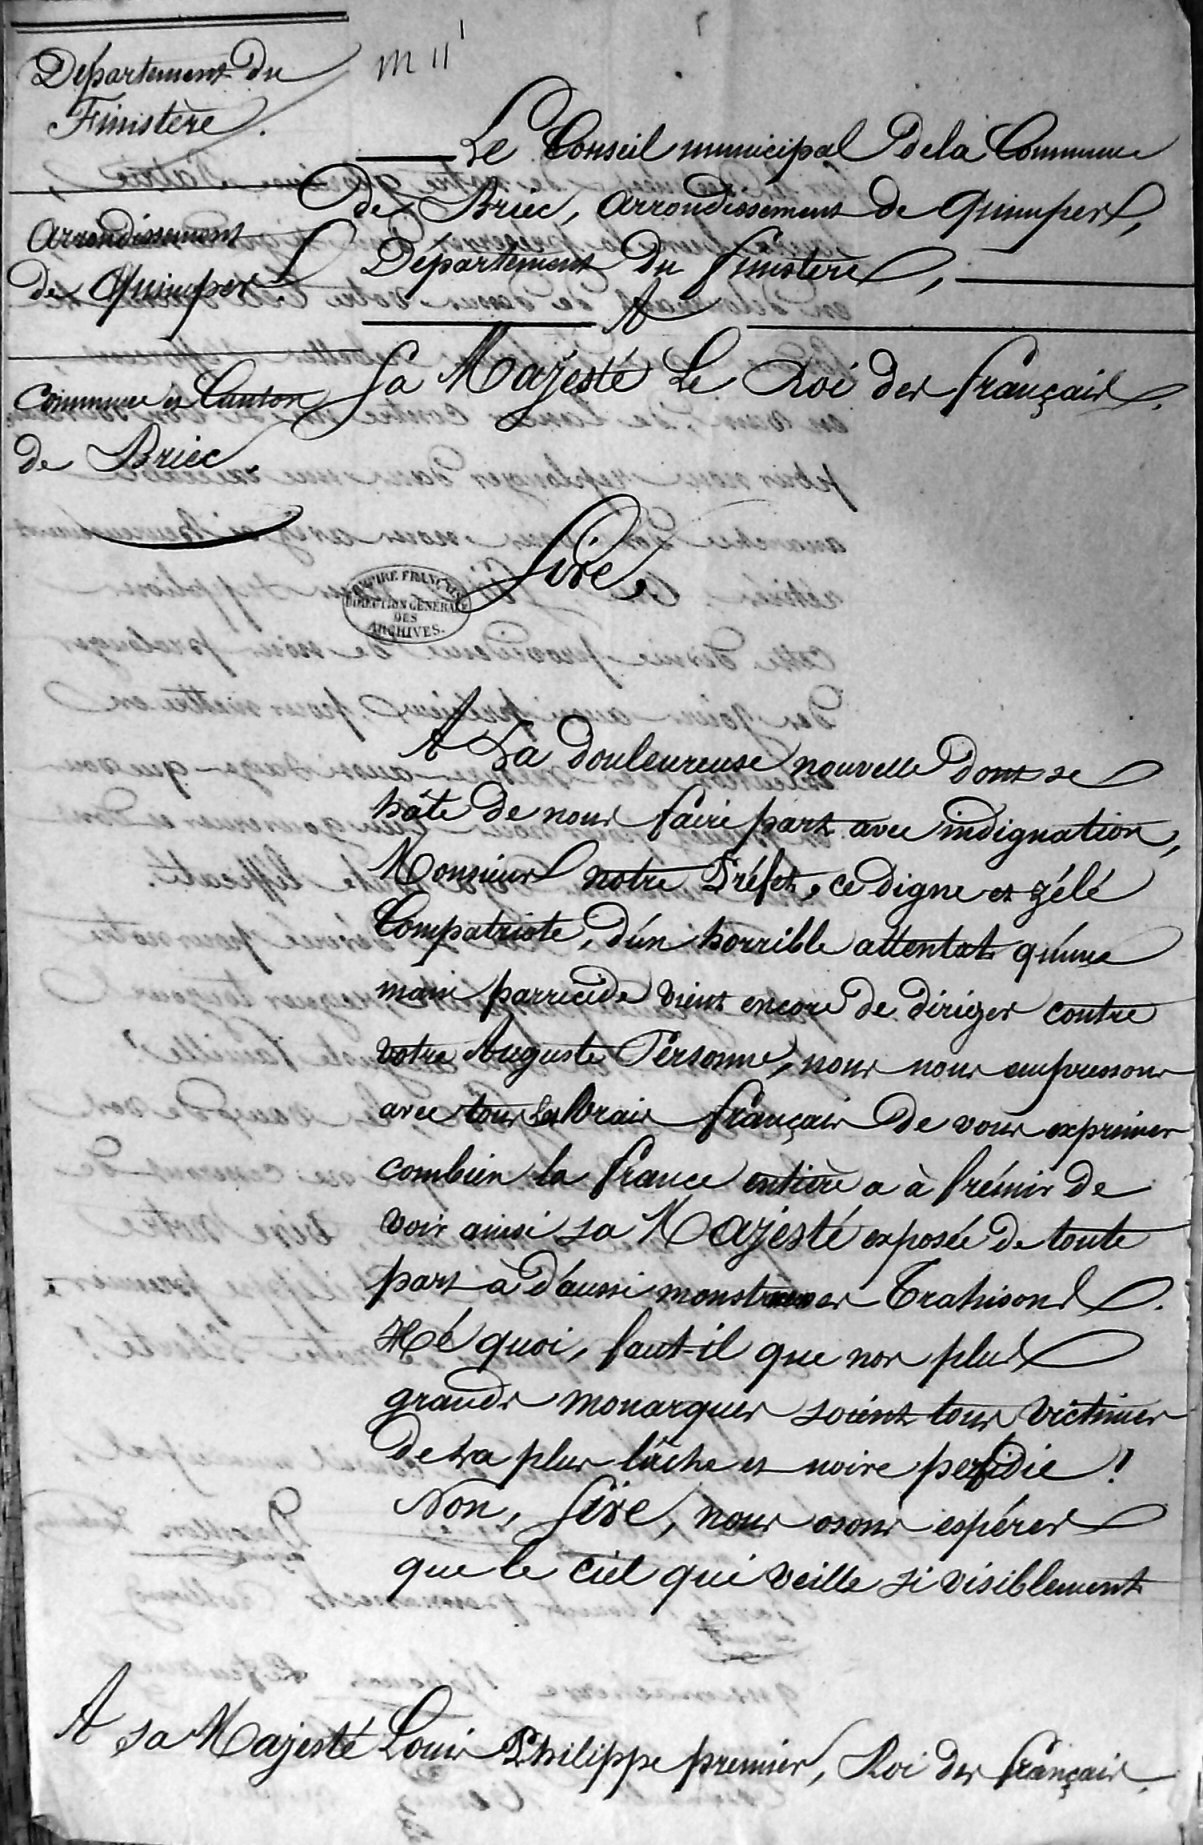 Département du
Finistère.
m 11
Le Conseil municipal de la Commune
de Briec, arrondissement de Quimper,
Département du finistère,
A
Sa Majesté Le Roi des français.
Arrondissement
de Quimper.
Commune et Canton
de Briec.
Sire,
EMPIRE FRANÇAIS
DIRECTION GÉNÉRALE
DES
ARCHIVES.
A La douleureuse nouvelle dont se
hâte de nous faire part avec indignation,
Monsieur notre Préfet, ce digne et zélé
Compatriote, d'un horrible attentat qu'une
main parricide vient encore de diriger contre
votre Auguste Personne, nous nous empressons
avec tous les vrais français de vous exprimer
combien la france entière a à frémir de
voir ainsi sa Majesté exposée de toute
part à d'aussi monstrueuses Trahisons.
Hé quoi, faut-il que nos plus
grands monarques soient tous victimes
de la plus lâche et noire perfidie!
Non, Sire, nous osons espérer
que le ciel qui veille si visiblement
A sa Majesté Louis Philippe premier, Roi des français.